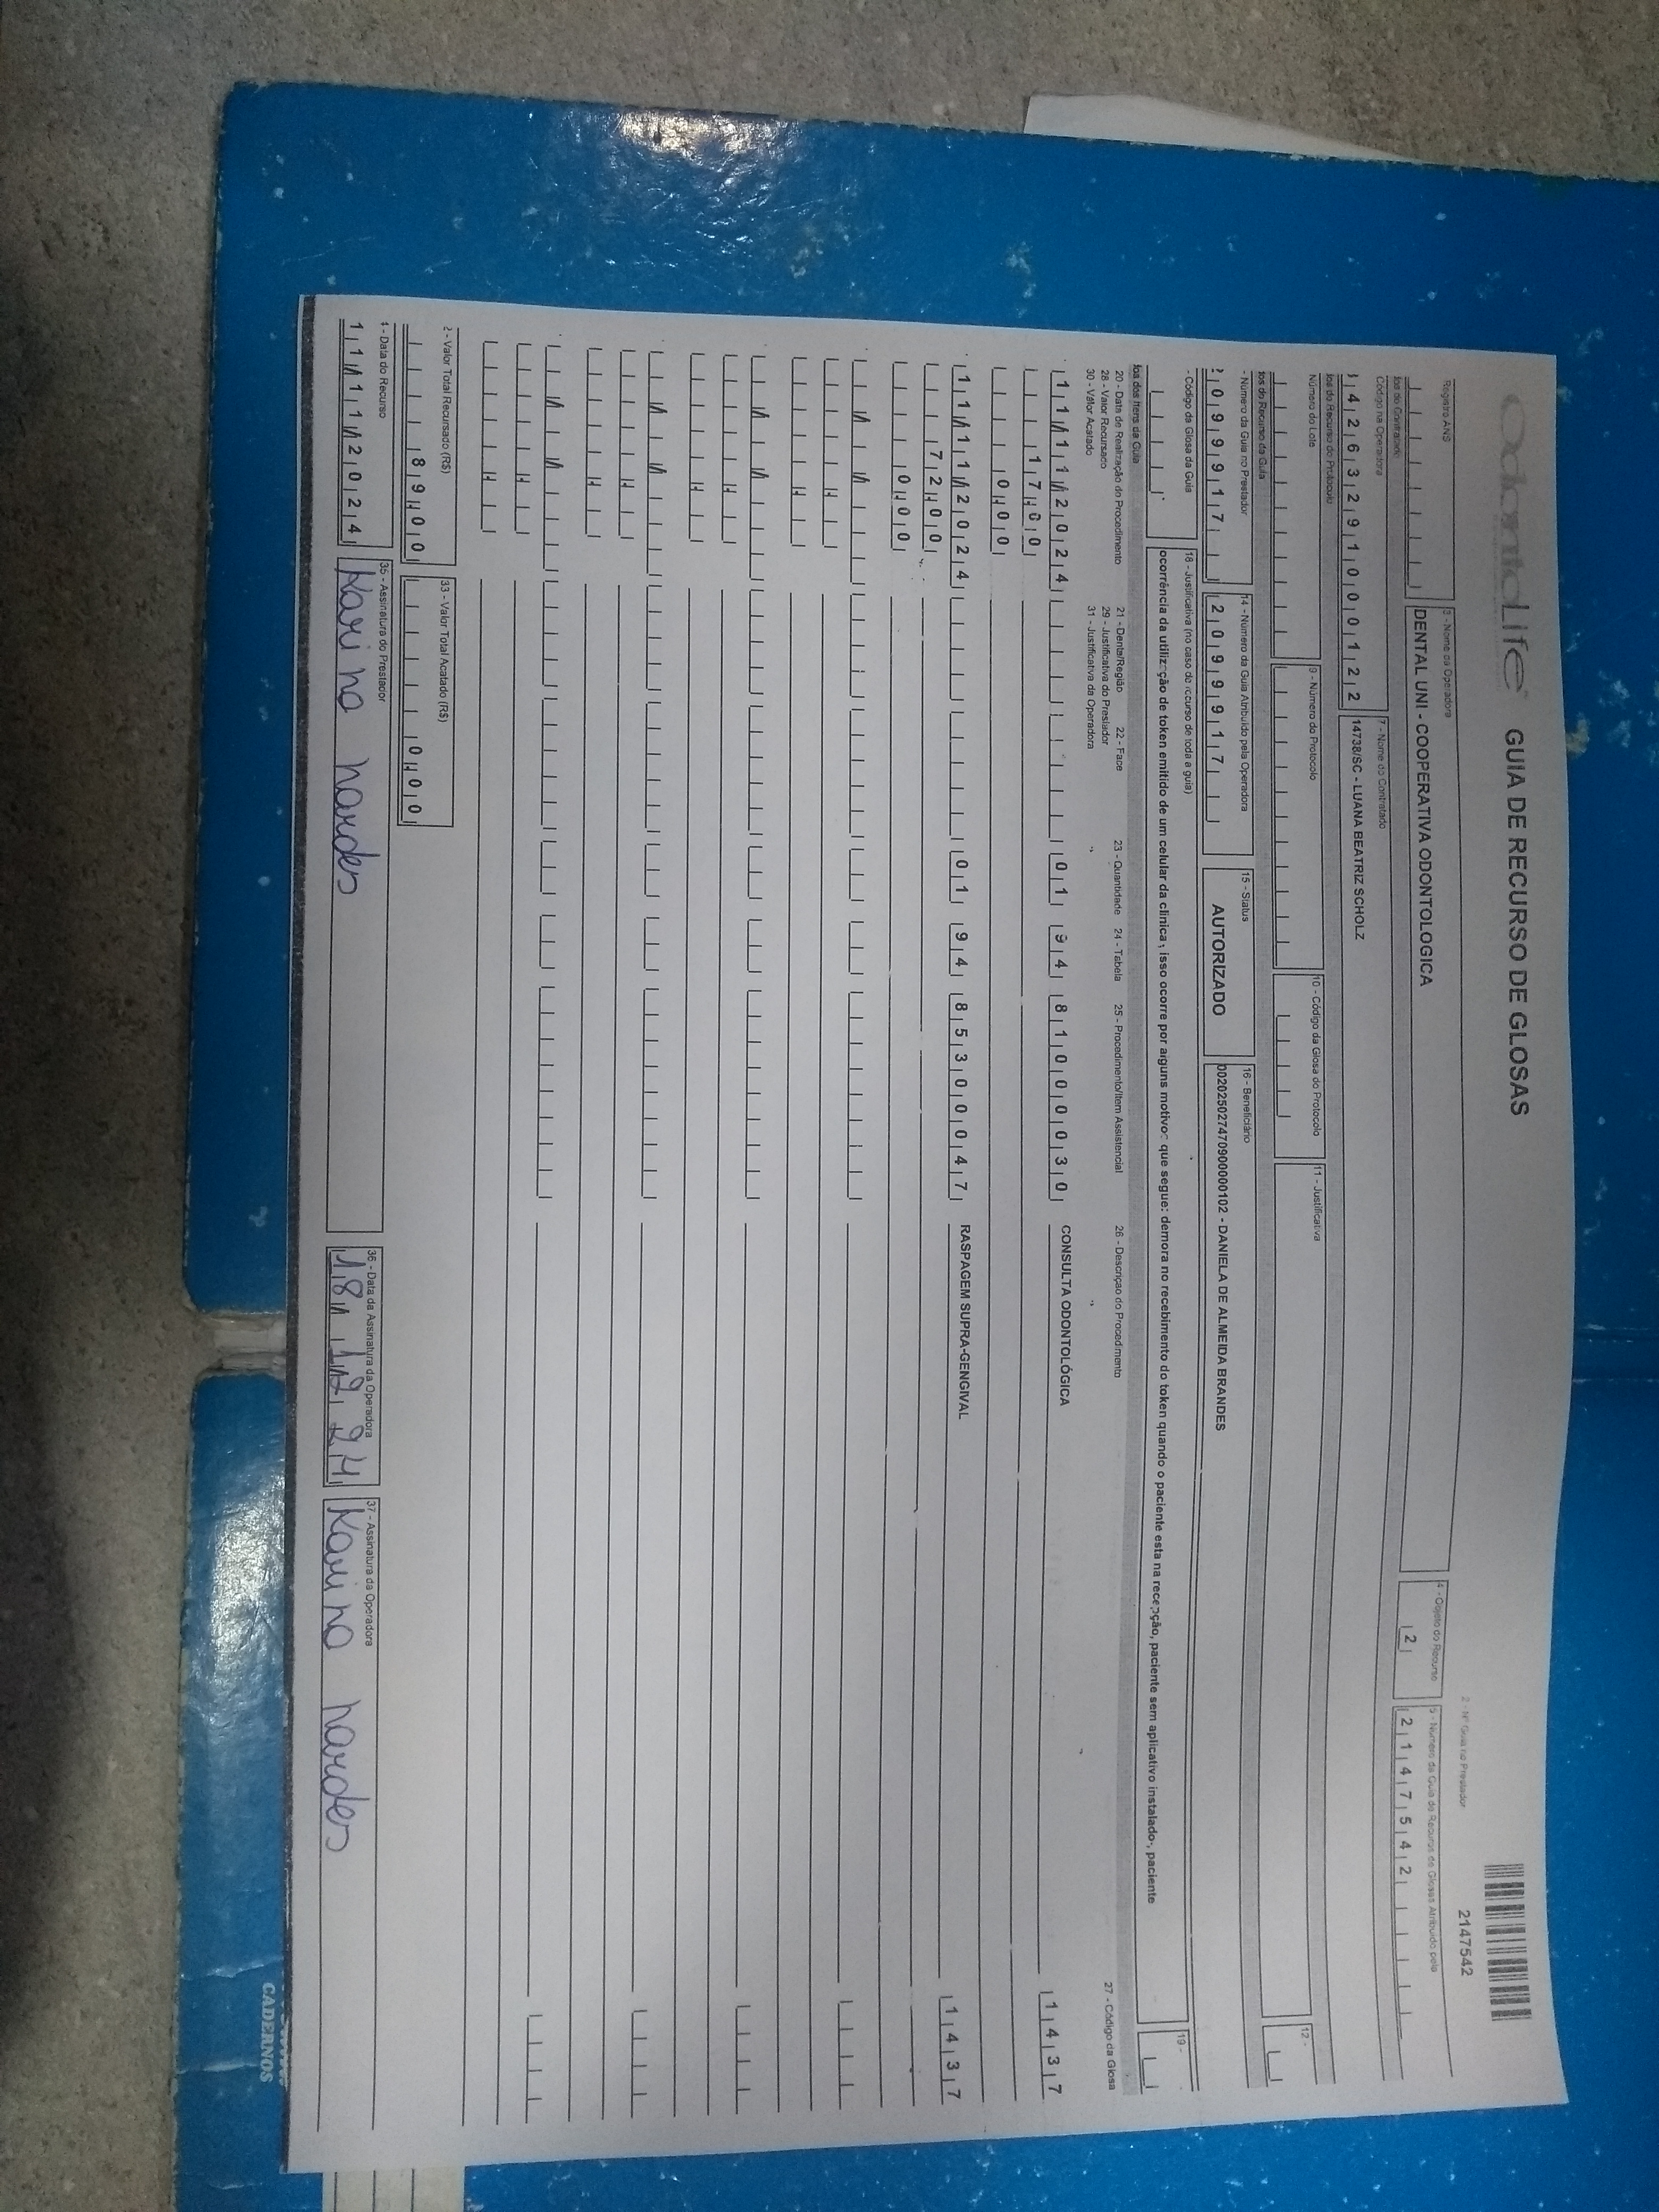 OdontoLife
GUIA DE RECURSO DE GLOSAS
2 - Nº Guia no Prestador
2147542
Registro ANS
3 - Nome da Operadora
DENTAL UNI - COOPERATIVA ODONTOLOGICA
4 - Objeto do Recurso
2
5 - Número da Guia de Recurso de Glosas Atribuído pela
2147542
dos do Contratado
Código na Operadora
4263291000122
7 - Nome do Contratado
14738/SC - LUANA BEATRIZ SCHOLZ
dos do Recurso do Protocolo
Número do Lote
9 - Número do Protocolo
10 - Código da Glosa do Protocolo
11 - Justificativa
12 -
dos do Recurso da Guia
- Número da Guia no Prestador
20999917
14 - Número da Guia Atribuído pela Operadora
20999917
15 - Status
AUTORIZADO
16 - Beneficiário
00202502747090000102 - DANIELA DE ALMEIDA BRANDES
- Código da Glosa da Guia
18 - Justificativa (no caso de recurso de toda a guia)
ocorrência da utilização de token emitido de um celular da clinica, isso ocorre por alguns motivos que segue: demora no recebimento do token quando o paciente esta na recepção, paciente sem aplicativo instalado, paciente
19 -
dos dos Itens da Guia
20 - Data de Realização do Procedimento
21 - Dente/Região
22 - Face
23 - Quantidade
24 - Tabela
25 - Procedimento/Item Assistencial
26 - Descrição do Procedimento
27 - Código da Glosa
28 - Valor Recursado
29 - Justificativa do Prestador
30 - Valor Acatado
31 - Justificativa da Operadora
11/11/2024 01 94 81000030 CONSULTA ODONTOLÓGICA 1437
17,00
0,00
11/11/2024 01 94 85300047 RASPAGEM SUPRA-GENGIVAL 1437
72,00
0,00
2 - Valor Total Recursado (R$)
89,00
33 - Valor Total Acatado (R$)
0,00
4 - Data do Recurso
11/11/2024
35 - Assinatura do Prestador
Karina nardes
36 - Data da Assinatura da Operadora
18 12 24
37 - Assinatura da Operadora
Karina nardes
CADERNOS